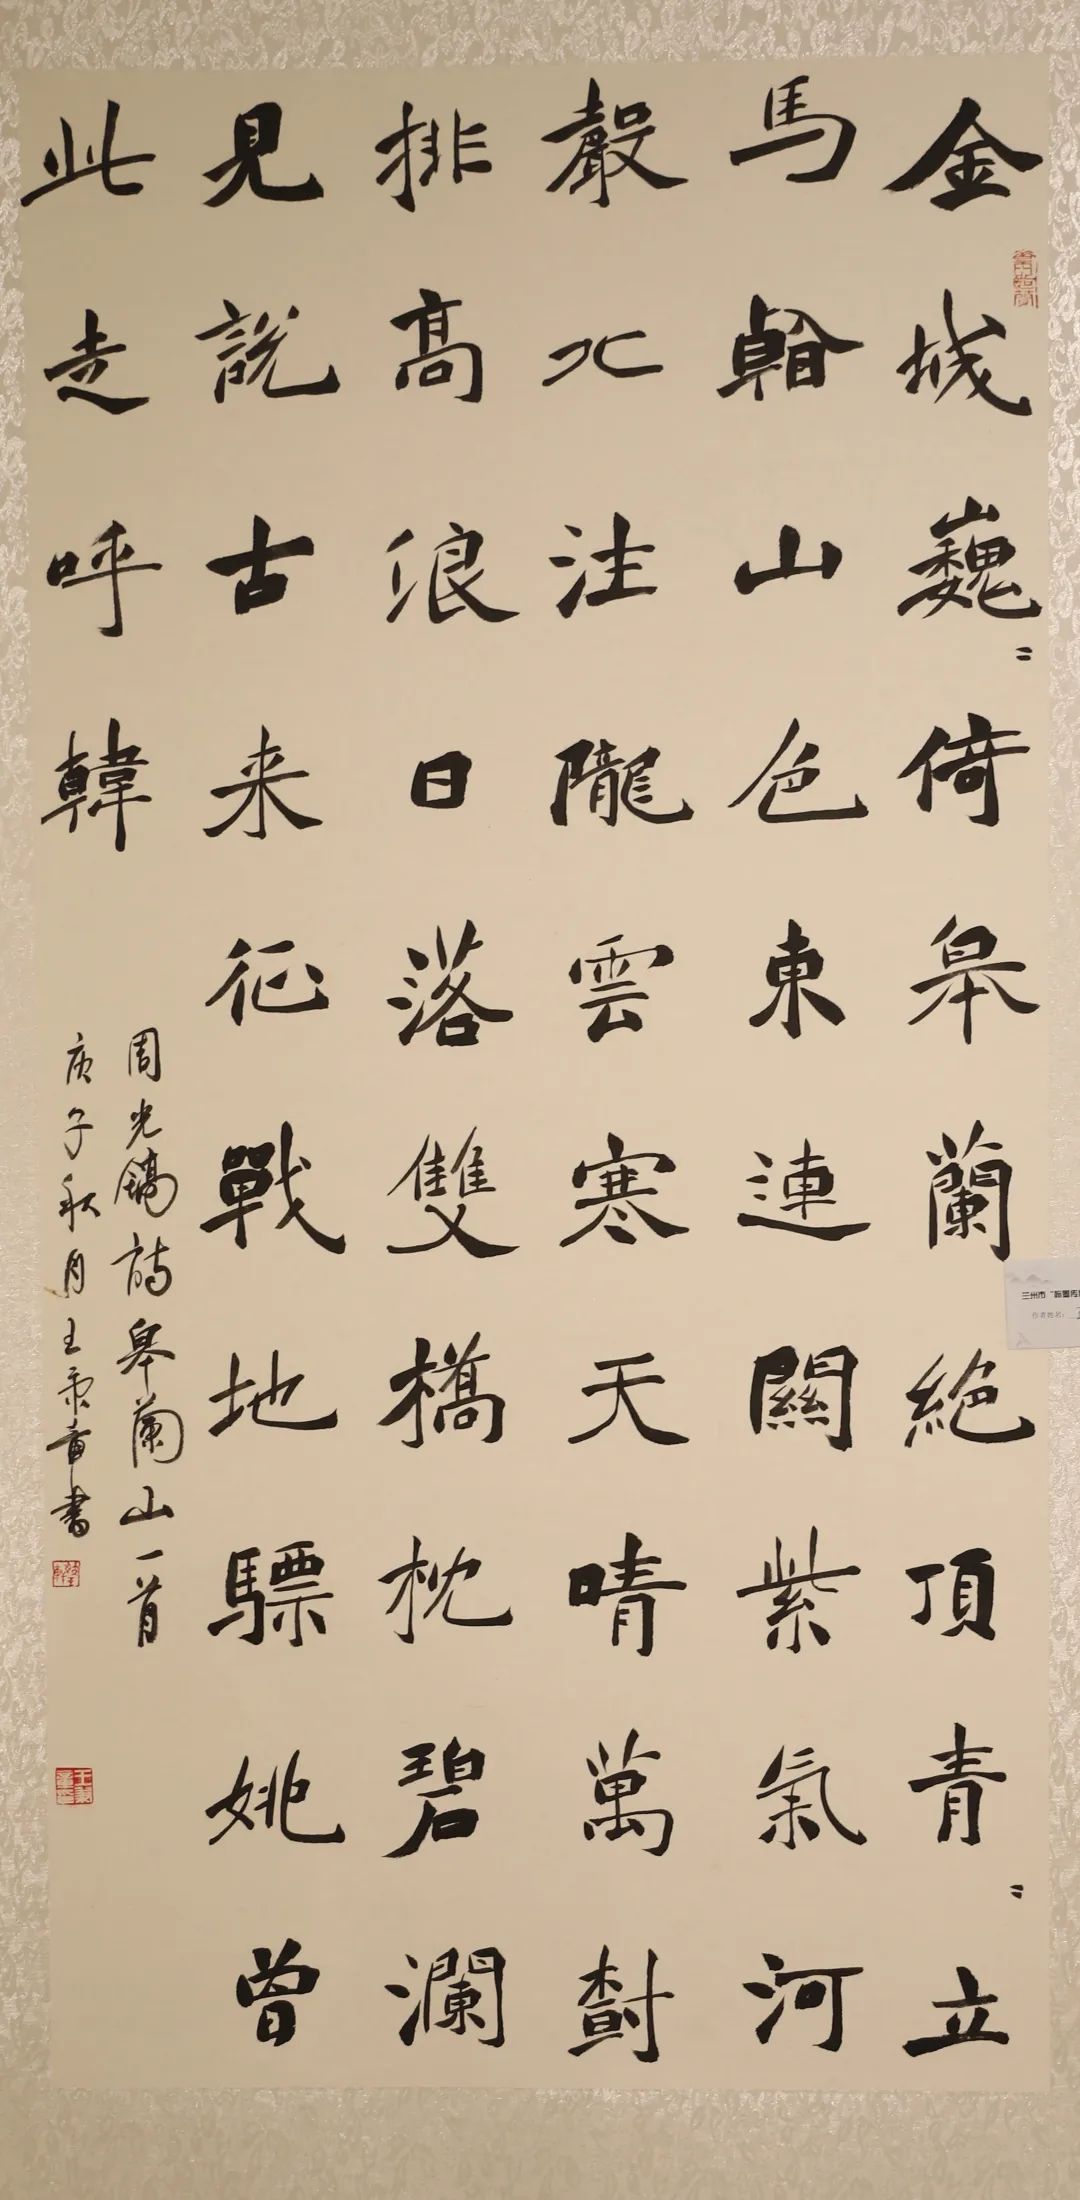 金城巍〻倚皋蘭絶頂青〻立
馬翰山色東連關紫氣河
聲北注隴雲寒天晴萬樹
排高浪日落雙橋枕碧瀾
見說古来征戰地驃姚曾
此走呼韓
周光鎬詩皋蘭山一首
庚子秋月王秉章書
兰州市"翰墨传
作者姓名: